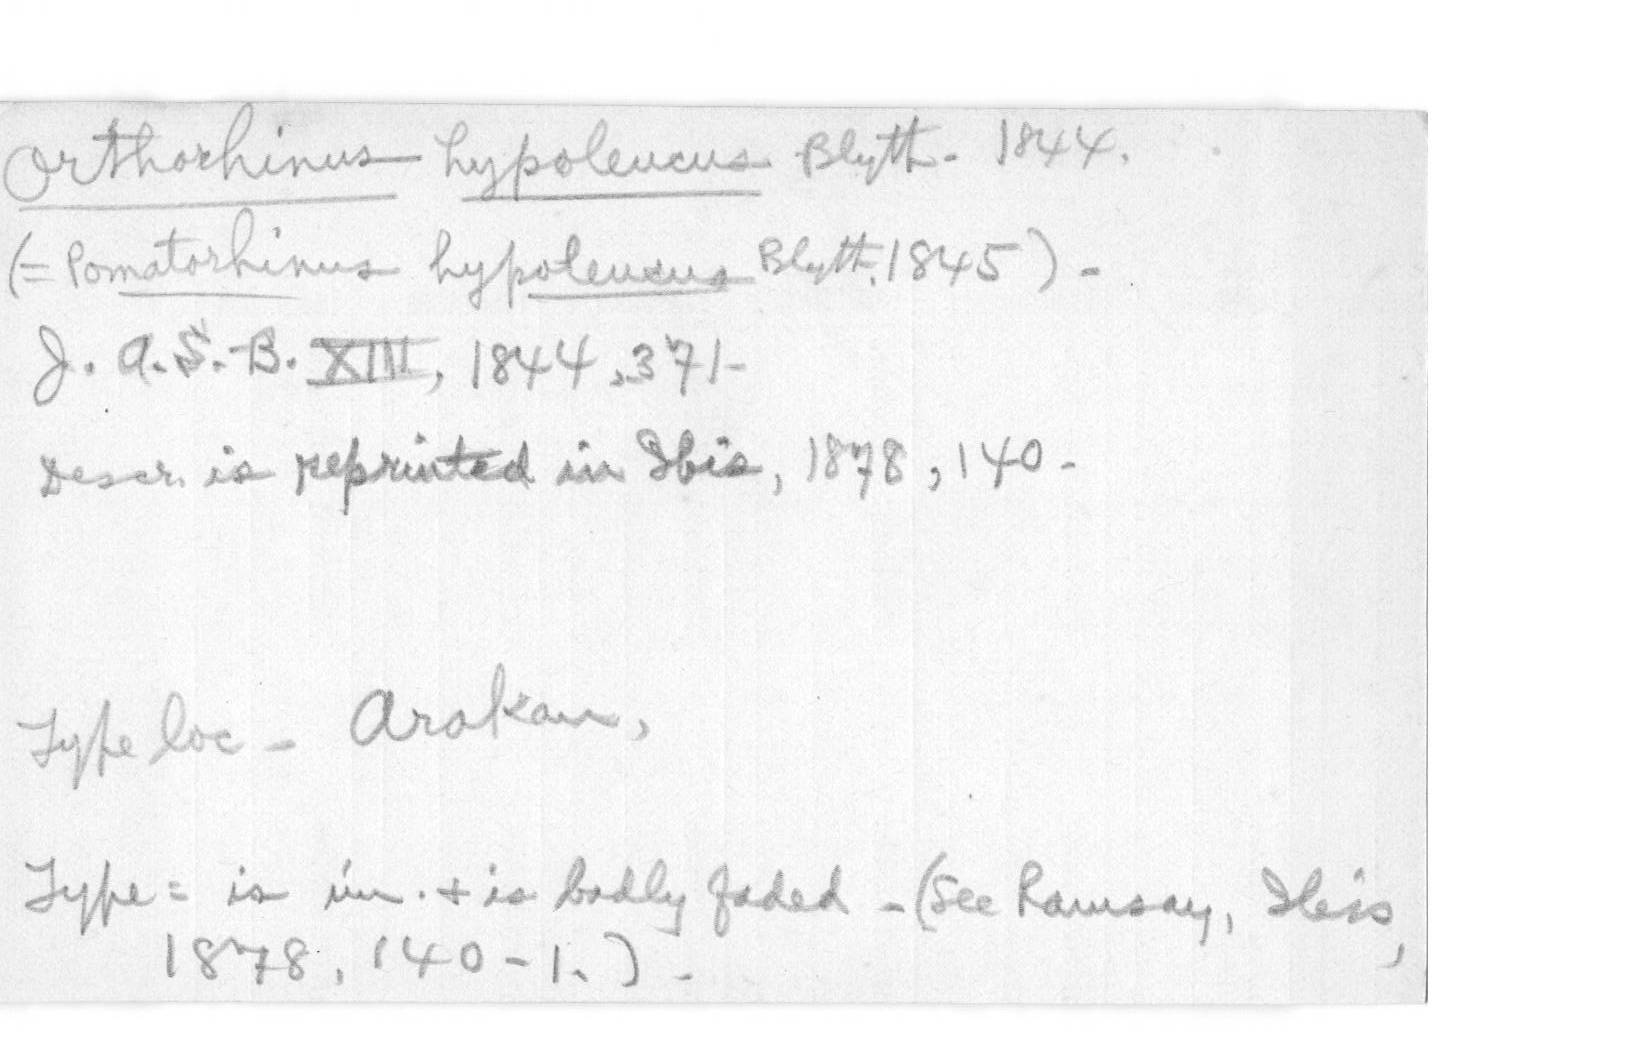 Orthorhinus hypoleucus Blyth. 1844.
(= Pomatorhinus hypoleucus Blyth, 1845) -
J. A. S. B. XIII, 1844, 371-
Descr. is reprinted in Ibis, 1878, 140-
Type loc - Arakan,
Type = is im. + is badly faded - (See Ramsay, Ibis,
1878, 140-1.) -